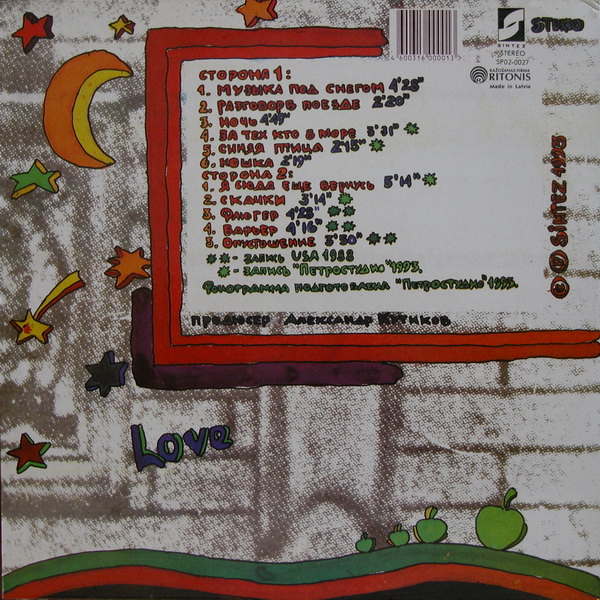 4600316000013
SINTEZ
STEREO
SP02-0027
RAŽOŠANAS FIRMA
RITONIS
Made in Latvia
STEREO
СТОРОНА 1:
1. МУЗЫКА ПОД СНЕГОМ 4'25"
2. РАЗГОВОР В ПОЕЗДЕ 2'20"
3. НОЧЬ 4'47"
4. ЗА ТЕХ КТО В МОРЕ 3'31" *
5. СИНЯЯ ПТИЦА 2'15" *
6. КОШКА 2'19"
СТОРОНА 2:
1. Я СЮДА ЕЩЕ ВЕРНУСЬ 5'14" *
2. СКАЧКИ 3'14" *
3. ФЛЮГЕР 4'28" **
4. БАРЬЕР 4'16" **
5. ОПУСТОШЕНИЕ 3'50" **
** - ЗАПИСЬ USA 1988
* - ЗАПИСЬ "ПЕТРОСТУДИО" 1993.
ФОНОГРАММА ПОДГОТОВЛЕНА "ПЕТРОСТУДИО" 1993.
ПРОДЮСЕР АЛЕКСАНДР КУТИКОВ
© ℗ SINTEZ 1993
Love